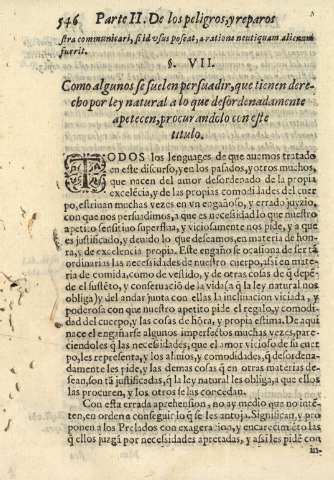 546 Parte II. De los peligros, y reparos
stra communicari, si id usus poscat, a ratione neutiquam alienum
fuerit.
§. VII.
Como algunos se suelen persuadir, que tienen dere-
cho por ley natural a lo que desordenadamente
apetecen, procurandolo con este
titulo.
TODOS los lenguages de que auemos tratado
en este discurso, y en los pasados, y otros muchos,
que nacen del amor desordenado de la propia
excelẽcia, y de las propias comodidades del cuer
po, estriuan muchas vezes en vn engañoso, y errado juyzio,
con que nos persuadimos, a que es necesidad lo que nuestro
apetito sensitiuo superflua, y viciosamente nos pide, y a que
es justificado, y deuido lo que deseamos, en materia de hon-
ra, y de excelencia propia. Este engaño se ocasiona de ser tã
ordinarias las necesidades de nuestro cuerpo, asi en mate-
ria de comida, como de vestido, y de otras cosas de q̃ depẽ-
de el sustẽto, y conseruaciõ de la vida (a q̃ la ley natural nos
obliga) y del andar junto con ellas la inclinacion viciada, y
poderosa con que nuestro apetito pide el regalo, y comodi-
dad del cuerpo, y las cosas de hõra, y propia estima. De aqui
nace el engañarse algunos imperfectos muchas vezes, pare-
ciendoles q̃ las necesidades, que el amor vicioso de su cuer-
po, les representa, y los aliuios, y comodidades, q̃ desordena-
damente les pide, y las demas cosas q̃ en otras materias de-
sean, son tã justificadas, q̃ la ley natural les obliga, a que ellos
las procuren, y los otros se las concedan.
Con esta errada aprehension, no ay medio que no inten-
ten, en orden a conseguir lo q̃ se les antoja. Significan, y pro
ponen a los Prelados con exageracion, y encarecimiẽto las
q̃ ellos juzgã por necesidades apretadas, y asi les pidẽ con